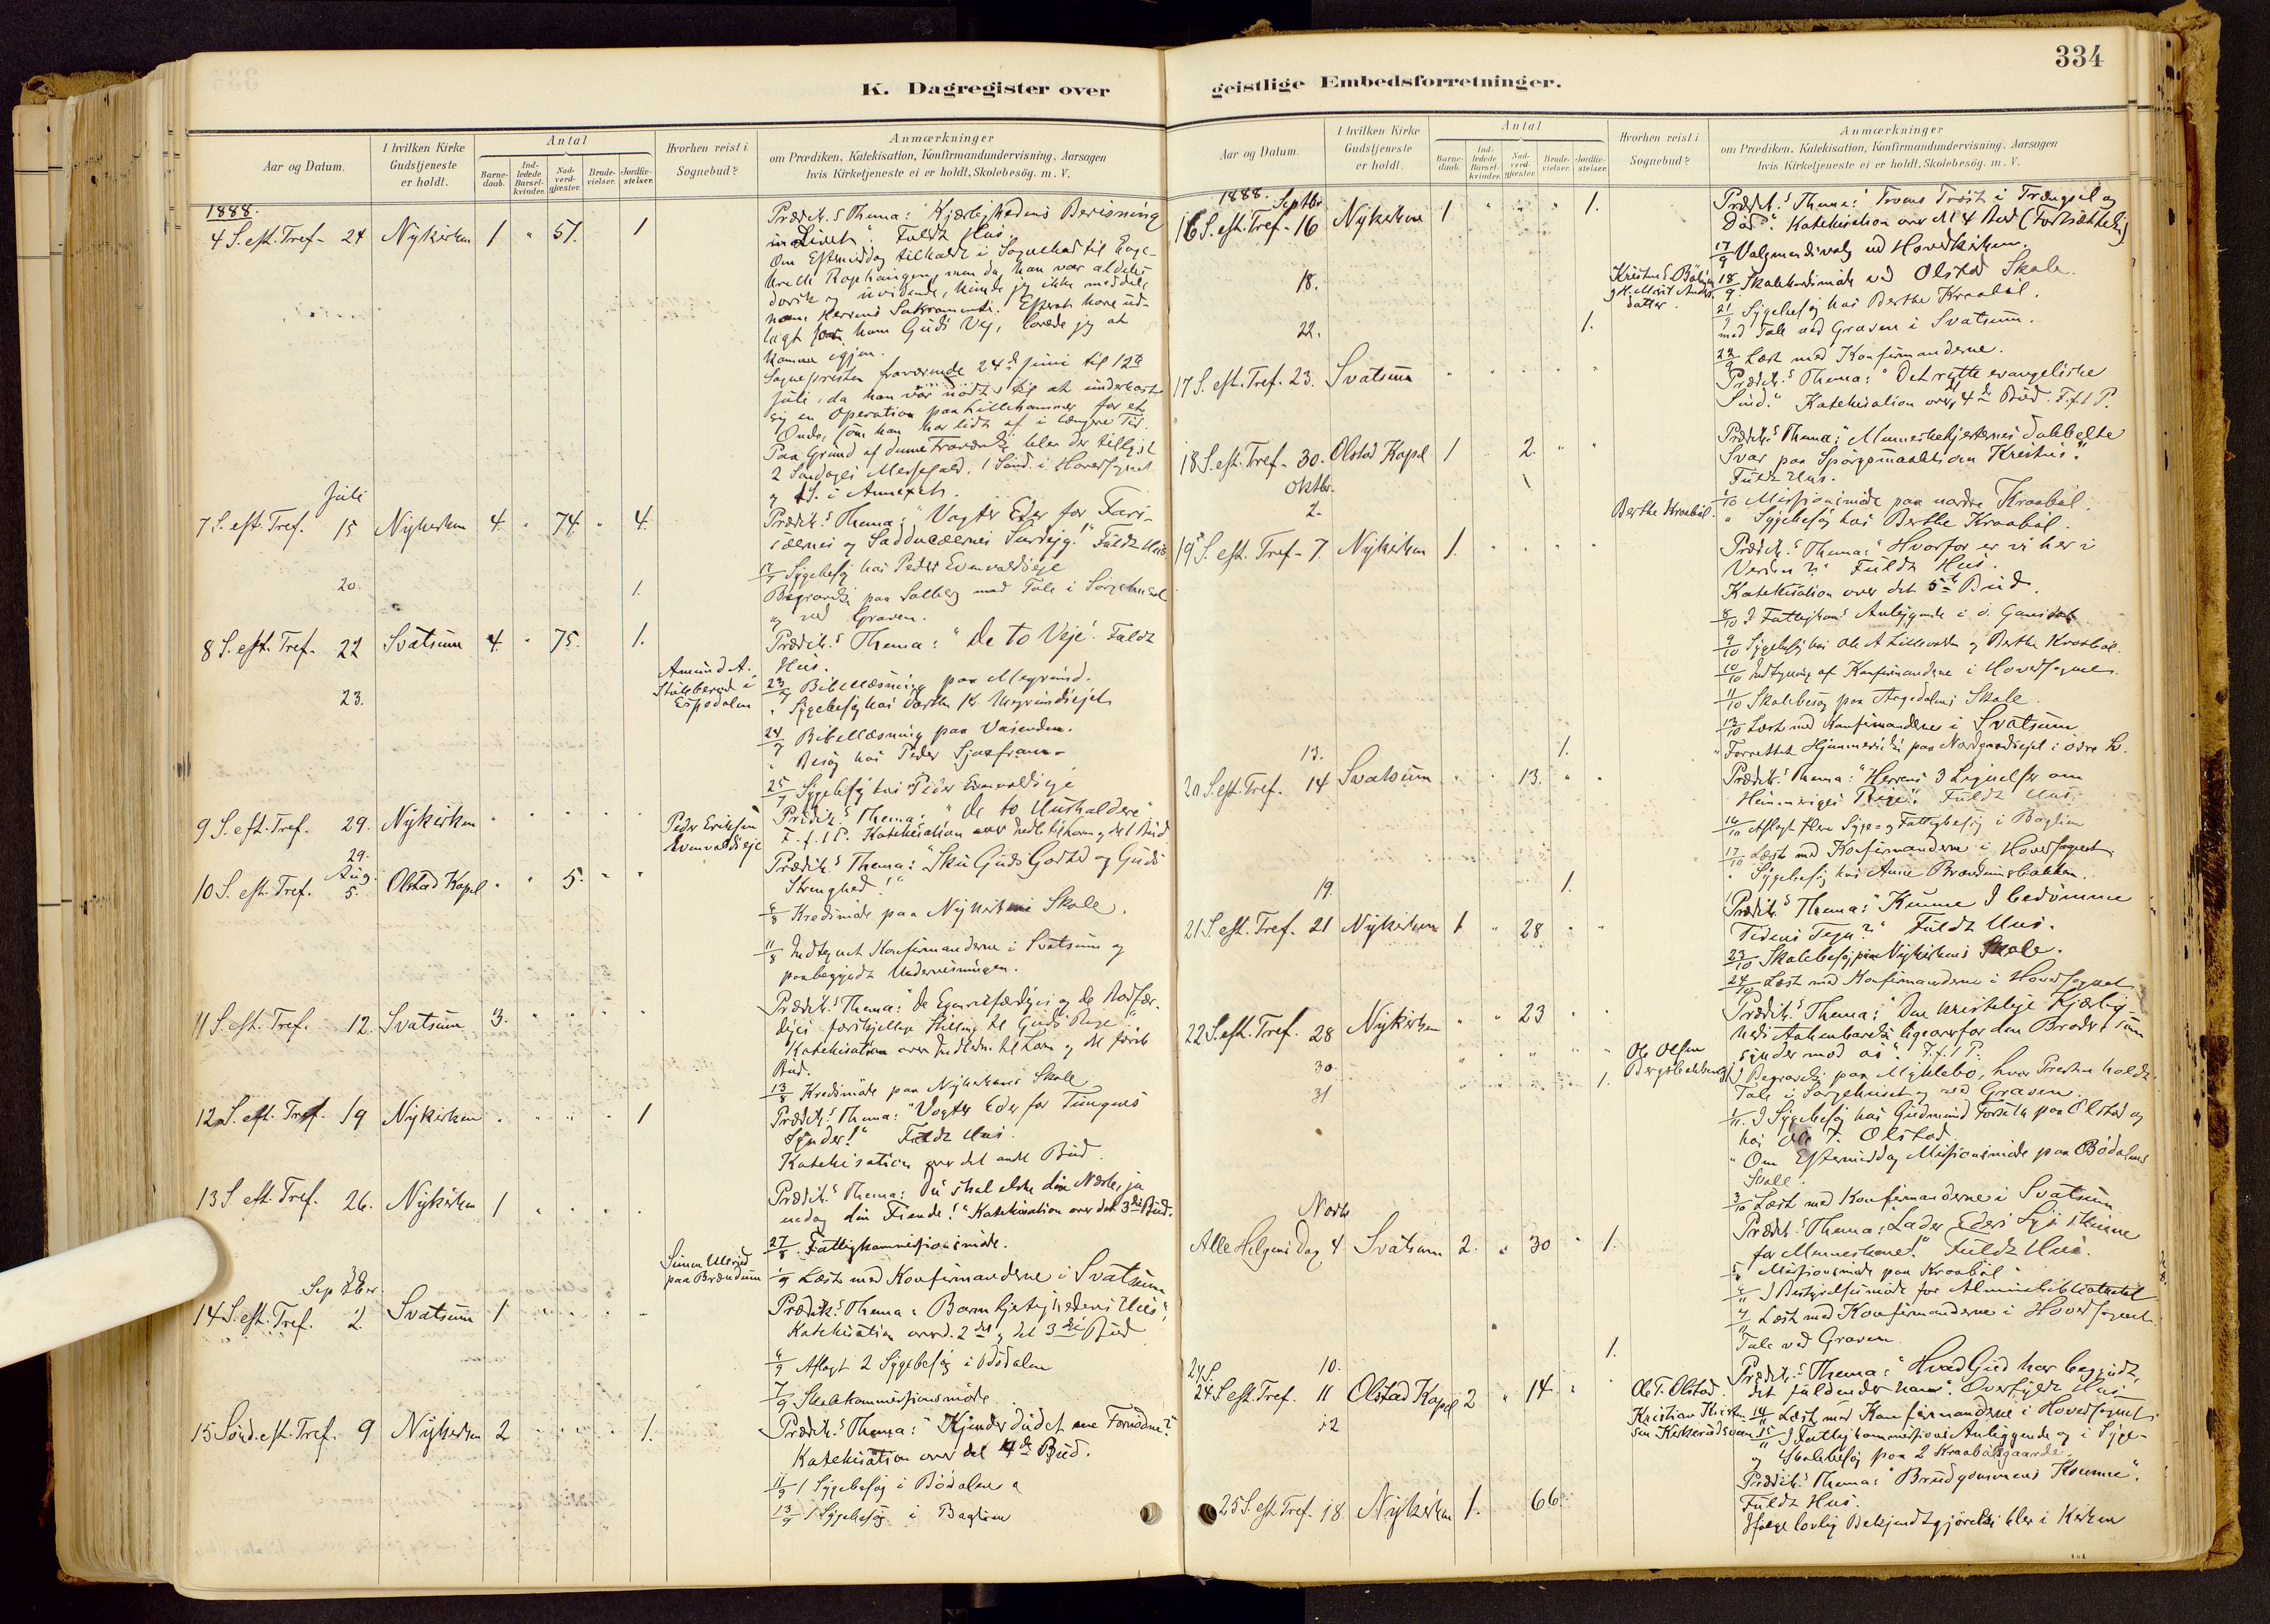 334
K. Dagregister over
geistlige Embedsforretninger.
Aar og Datum.
I hvilken Kirke
Gudstjeneste
er holdt.
Antal
Barne-
daab.
Ind-
ledede
Barsel-
kvinder.
Nad-
verd-
gjæster.
Brude-
vielser.
Jordfæ-
stelser.
Hvorhen reist i
Sognebud?
Anmærkninger
om Prædiken, Katekisation, Konfirmandundervisning, Aarsagen
hvis Kirketjeneste ei er holdt, Skolebesøg. m. V.
1888.
4 S. eft. Tref. 24 Nykirken 1 " 51. 1
Prædik.s Thema: "Kjærlighedens Bevisning
i Livet". Fuldt Hus.
Om Eftermiddag tilkaldt i Sognebud til
komme igjen.
Sognepresten fraværende 24de Juni til 12te
Juli, da han var nødt til at underkaste
sig en Operation paa Lillehammer for et
Onde, som han har lidt af i længere Tid.
Paa Grund af denne Fraværelse blev der
2 Søndages Messefald, 1 Sønd. i Hovedsognet
og 1 S. i Annexet.
Juli
7 S. eft. Tref. 15 Nykirken 4. " 74 " 4.
Prædik.s Thema: "Vogter Eder for Fari-
sæernes og Sadducæernes Surdeig!" Fuldt Hus
17/7 Sygebesøg hos Peder Evenvoldseje
20. 1.
Begravelse paa Solberg med Tale i Sørgehuset
og ved Graven.
8 S. eft. Tref. 22 Svatsum 4. " 75. 1.
Prædik.s Thema: "De to Veje". Fuldt
Hus.
23.
Amund A.
Espedalen
23/7 Bibellæsning paa Megrund.
24/7 Bibellæsning paa Vasenden.
" Besøg hos Peder
25/7 Sygebesøg hos Peder Evenvoldseje
9 S. eft. Tref. 29. Nykirken
29.
Peder Eriksen
Evenvoldseje
Prædik.s Thema: "De to Husholdere"
F. f. 1 P. Katekisation over
Aug.
10 S. eft. Tref. 5. Olstad Kapel " " 5. " "
Prædik.s Thema: "Sku Guds Godhed og Guds
Strenghed!"
6/8 Kredsmøde paa Nykirkens Skole.
11/8 Indtegnet Konfirmanderne i Svatsum og
paabegyndt Undervisningen.
11 S. eft. Tref. 12. Svatsum 3.
Prædik.s Thema: "De Egenretfærdiges og de Bodfær-
diges forskjellige Stilling til Guds Rige"
Katekisation over Indledn. til Loven og det første
Bud.
13/8 Kredsmøde paa Nykirkens Skole
12 S. eft. Tref. 19 Nykirken 1
Prædik.s Thema: "Vogter Eder for Tungens
Synder!" Fuldt Hus.
Katekisation over det andet Bud.
13 S. eft. Tref. 26. Nykirken 1
Prædik.s Thema: Du skal elske din Næste, ja
endog din Fiende!" Katekisation over det 3die Bud.
27/8 Fattigkommissionsmøde.
Simen Ullerud
paa Brændum
1/9 Læst med Konfirmanderne i Svatsum
September.
14 S. eft. Tref. 2 Svatsum 1
Prædik.s Thema: Barmhjertighedens Hus"
Katekisation over d. 2det og det 3die Bud
6/9 Aflagt 2 Sygebesøg i Bødalen
7/9 Skolekommissionsmøde
15 Sønd. eft. Tref. 9 Nykirken 2 1.
Prædik.s Thema: "Kjender du det ene Fornødne?"
Katekisation over det 4de Bud.
11/9 1 Sygebesøg i Bødalen
13/9 1 Sygebesøg i Baglien
Aar og Datum.
I hvilken Kirke
Gudstjeneste
er holdt.
Antal
Barne-
daab.
Ind-
ledede
Barsel-
kvinder.
Nad-
verd-
gjæster.
Brude-
vielser.
Jordfæ-
stelser.
Hvorhen reist i
Sognebud?
Anmærkninger
om Prædiken, Katekisation, Konfirmandundervisning, Aarsagen
hvis Kirketjeneste ei er holdt, Skolebesög. m. V.
1888. Septbr.
16 S. eft. Tref. 16 Nykirken 1 " " " 1.
Prædik.s Thema: "Troens Trøst i Trængsel og
Død". Katekisation over det 4 Bud (Fortsættelse)
17/9 Valgmandsvalg ved Hovedkirken.
18.
18/9 Skolekredsmøde ved Olstad Skole.
21/9 Sygebesøg hos Berthe Kraabøl.
22. 1.
med Tale ved Graven i Svatsum.
22/9 Læst med Konfirmanderne.
17 S. eft. Tref. 23. Svatsum
Prædik.s Thema: "Det rette evangeliske
Sind." Katekisation over 4de Bud. F. f. 1 P.
18 S. eft. Tref. 30. Olstad Kapel 1 2.
Prædik.s Thema: "Menneskehjerternes dobbelte
Svar paa Spørgsmaalet om Kristus."
Fuldt Hus.
Oktbr.
2.
Berthe Kraabøl.
1/10 Missionsmøde paa nordre Kraabøl.
" Sygebesøg hos Berthe Kraabøl.
19 S. eft. Tref. 7. Nykirken 1.
Prædik.s Thema: "Hvorfor er vi her i
Verden?" Fuldt Hus.
Katekisation over det 5te Bud.
8/10 I Fattigkoms Anliggende i ö. Gausdal
9/10 Sygebesøg hos Ole A og Berthe Kraabøl.
10/10 Indtegning af Konfirmanderne i Hovedsognet.
11/10 Skolebesøg paa Aagedalens Skole.
13/10 Læst med Konfirmanderne i Svatsum
13. 1.
20 S. eft. Tref. 14 Svatsum " " 13. "
Prædik.s Thema: "Herrens 3 Lignelser om
Himmeriges Rige". Fuldt Hus.
16/10 Aflagt flere Syge- og Fattigbesøg i Baglien
17/10 Læst med Konfirmanderne i Hovedsognet
" Sygebesøg hos Anne Brændumsbakken.
19. 1.
21 S. eft. Tref. 21 Nykirken 1 " 28 "
Prædik.s Thema: "Kunne I bedømme
Tidens Tegn?" Fuldt Hus.
23/10 Skolebesøg paa Nykirkens Skole.
24/10 Læst med Konfirmanderne i Hovedsognet
22 S. eft. Tref. 28 Nykirken " " 23
Prædik.s Thema: "Den kristelige Kjærlig-
heds Aabenbarelse ligeoverfor den Broder, som
synder mod os". F. f. 1 P.
30
Ole Olsen
31 1.
Begravelse paa Myklebo, hvor Presten holdt
Tale i Sørgehuset og ved Graven.
1/11. I Sygebesøg hos Gudmund Forseth paa Olstad og
hos Ole T. Olstad.
" Om Eftermiddag Missionsmøde paa Bødalens
Skole.
3/10 Læst med Konfirmanderne i Svatsum
Novbr
Alle Helgens Dag 4 Svatsum 2. " 30 " 1.
Prædik.s Thema: "Lader Eders Lys skinne
for Menneskene!" Fuldt Hus.
5/11 Missionsmøde paa Kraabøl
6/11 I Bestyrelsesmøde for Almuebibliotheket
7/11 Læst med Konfirmanderne i Hovedsognet.
10. 1.
Tale ved Graven.
24 S.
24 S. eft. Tref. 11 Olstad Kapel 2 " 14 "
Ole T. Olstad.
Prædik.s Thema: "Hvad Gud har begyndt,
det fuldender han". Overfyldt Hus
12
Kristian Kristen-
sen
14/11 Læst med Konfirmanderne i Hovedsognet.
15/11 I Fattigkommissions Anliggende og i Syge-
og Skolebesøg paa 2 Kraabølsgaarde
25 S. eft. Tref. 18 Nykirken 1. 66
Prædik.s Thema: "Brudgommens Komme".
Fuldt Hus.
Ifølge lovlig Bekjendtgjørelse blev i Kirken